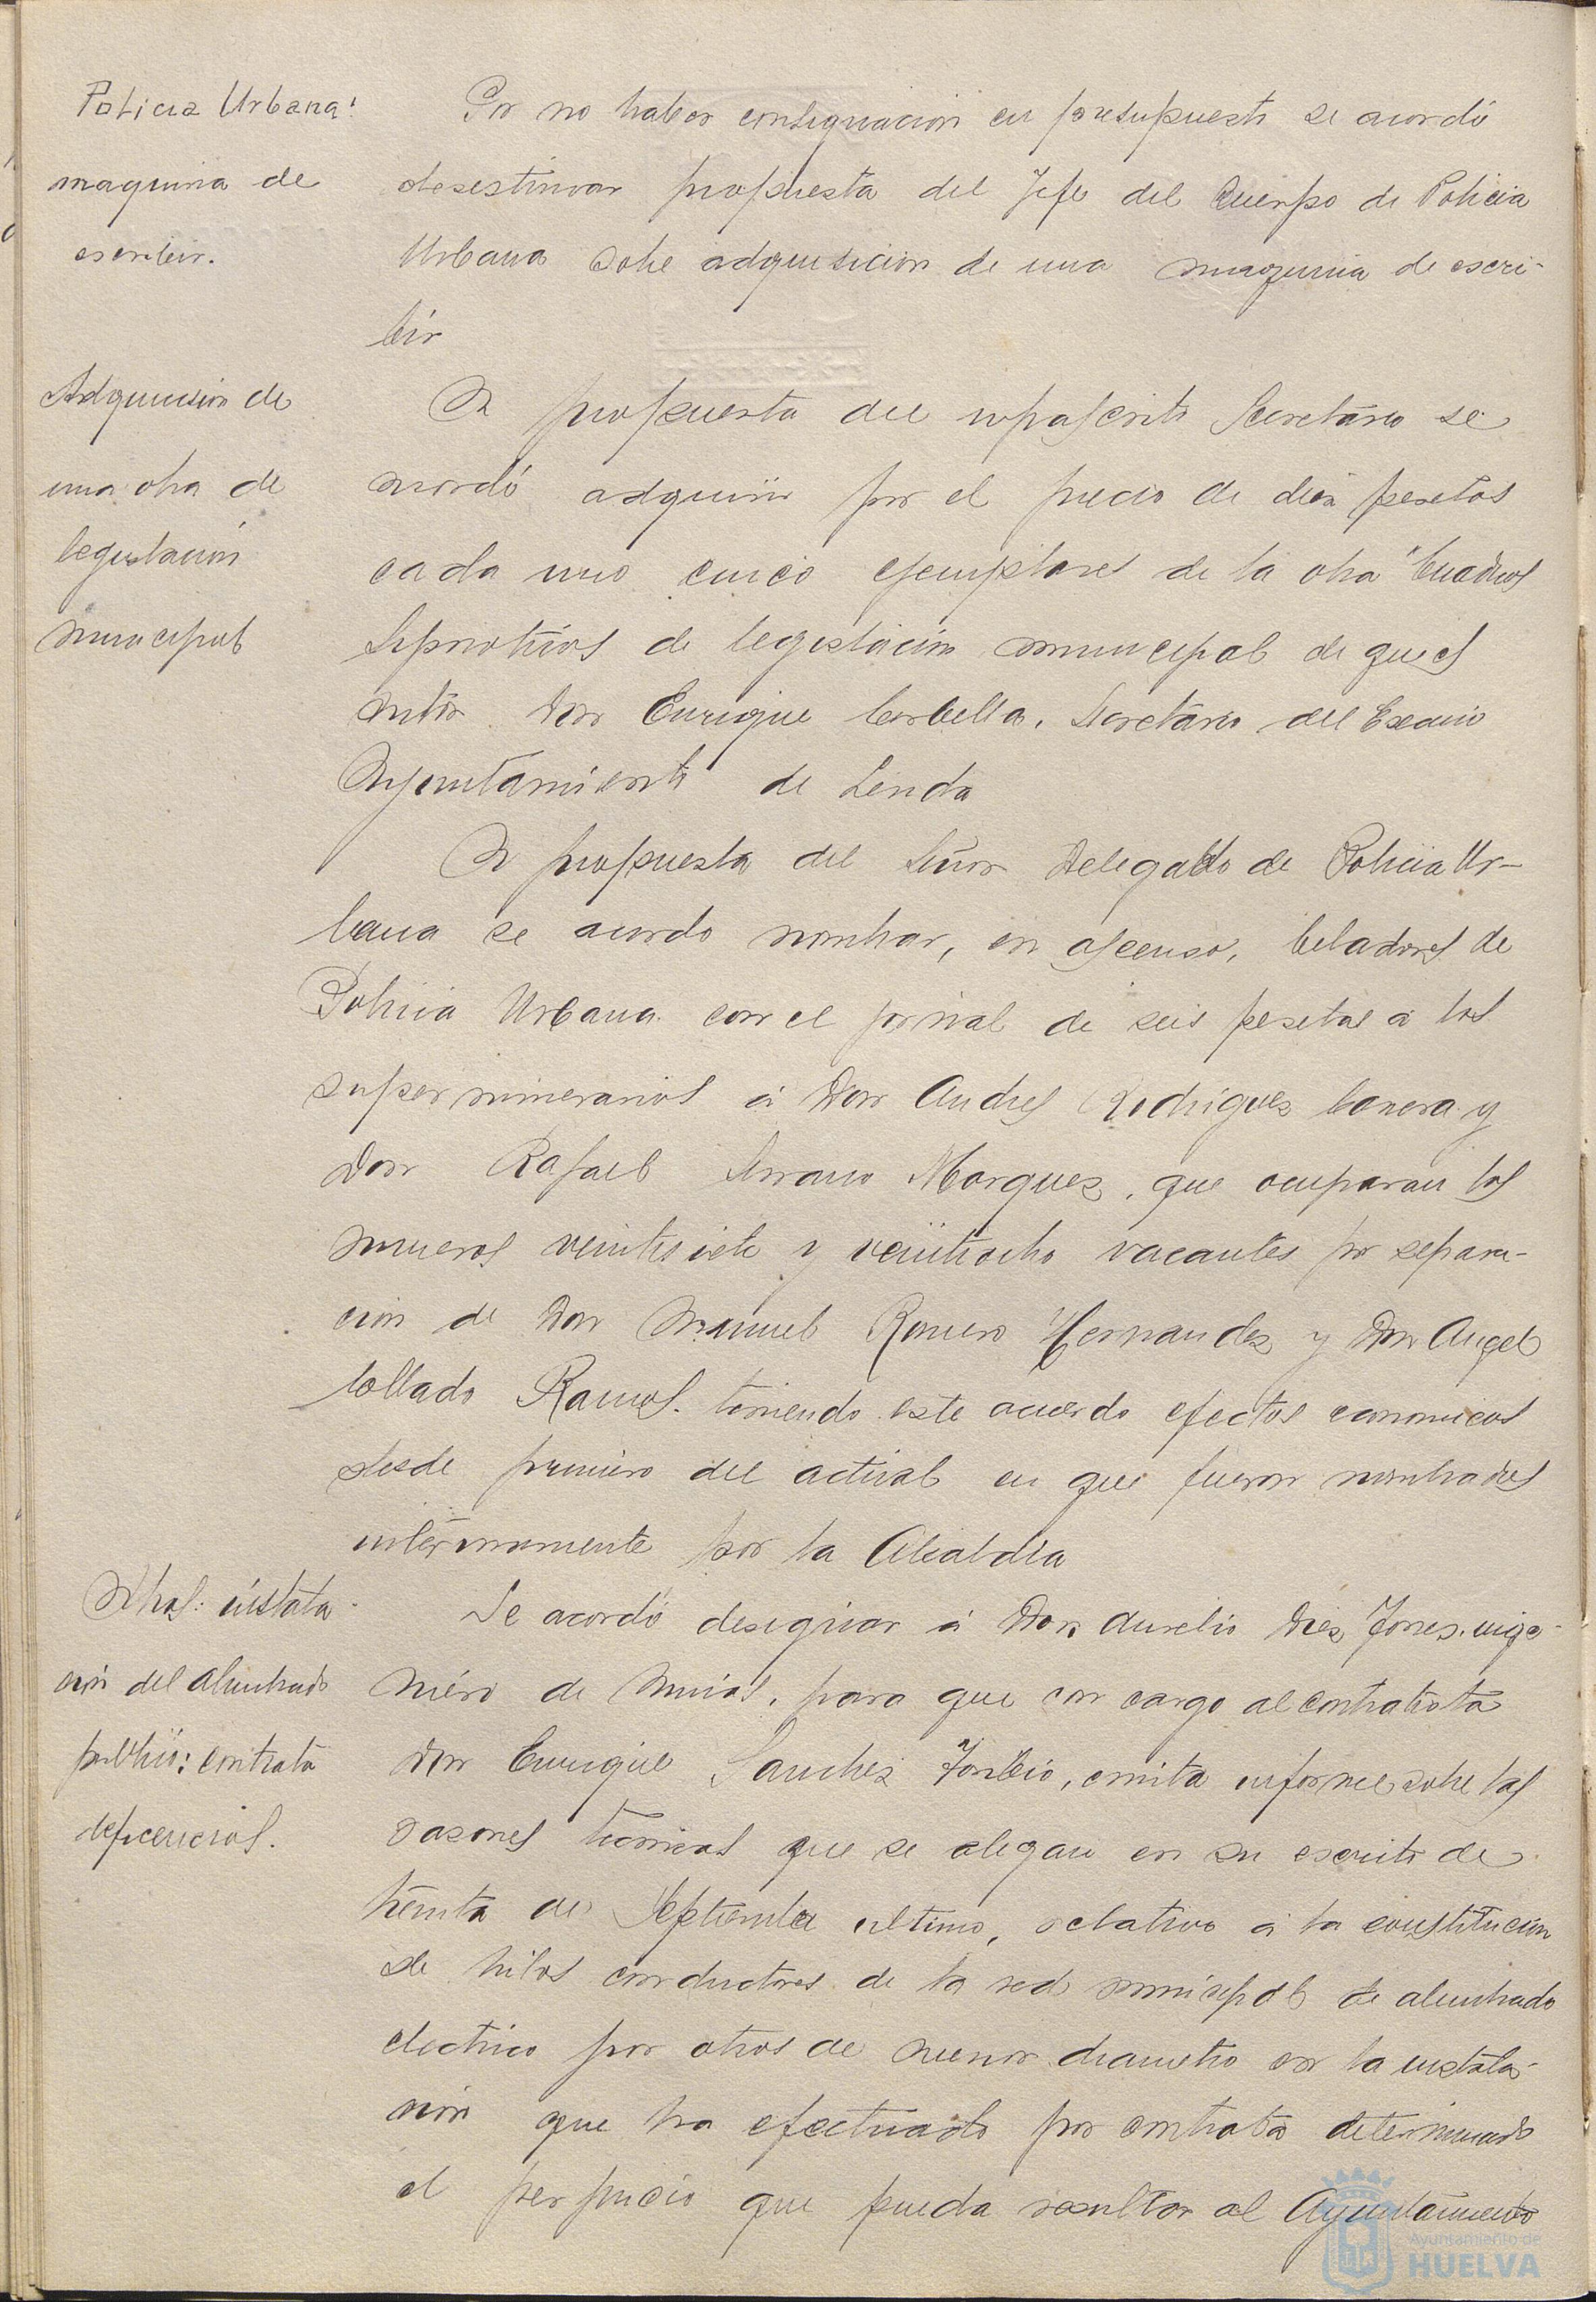 Policia Urbana:
maquina de
escribir.
Por no haber consignacion en presupuesto se acordó
desestimar propuesta del Jefe del Cuerpo de Policia
Urbana sobe adquisicion de una maquina de escri-
bir
Adquisicion de
una obra de
legislacion
municipal
A propuesta del infrascrito Secretario se
acordó adquirir por el precio de diez pesetas
cada uno cinco ejemplares de la obra "Cuadros
Sipnoticos de legislacion municipal de que es
autor Don Enrique Corbella, Secretario del Excmo
Ayuntamiento de Lerida
A propuesta del Señor Delegado de Policia Ur-
bana se acordo nombrar, en ascenso, Celadores de
Policia Urbana con el jornal de seis pesetas a los
supernumerarios á Don Andres Rodriguez y
Don Rafael Serrano Marquez, que ocuparan los
numeros veintisiete y veintiocho vacantes por separa-
cion de Don Manuel Romero Hernandez y Don Angel
Collado Ramos. teniendo este acuerdo efectos economicos
desde primero del actual en que fueron nombrados
interinamente por la Alcaldia
Obras: instala-
cion del alumbrado
publico: contrata
deficiencias.
Se acordó designar á Don Aurelio Diez Torres, inge-
niero de minas, para que con cargo al contratista
Don Enrique Sanchez, emita informe sobre las
razones tecnicas que se alegan en su escrito de
treinta de Septiembre ultimo, relativo á la constitucion
de hilos conductores de la red municipal de alumbrado
electrico por otros de menor diametro en la instala-
cion que ha efectuado por contrata determinando
el perjuicio que pueda resultar al Ayuntamiento
Ayuntamiento de
HUELVA